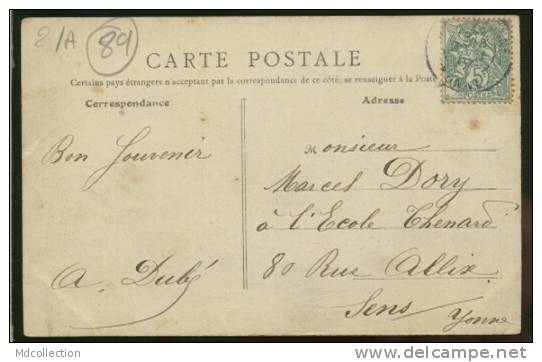 2/A
89
CARTE POSTALE
Certains pays étrangers n'acceptant pas la correspondance de ce côté, se renseigner à la Poste
Correspondance
Adresse
Bon Souvenir
A. Dubé
Monsieur
Marcel Dory
à l'Ecole Thenard
80 Rue Allix
Sens Yonne
Mdcollection
www.delcampe.net